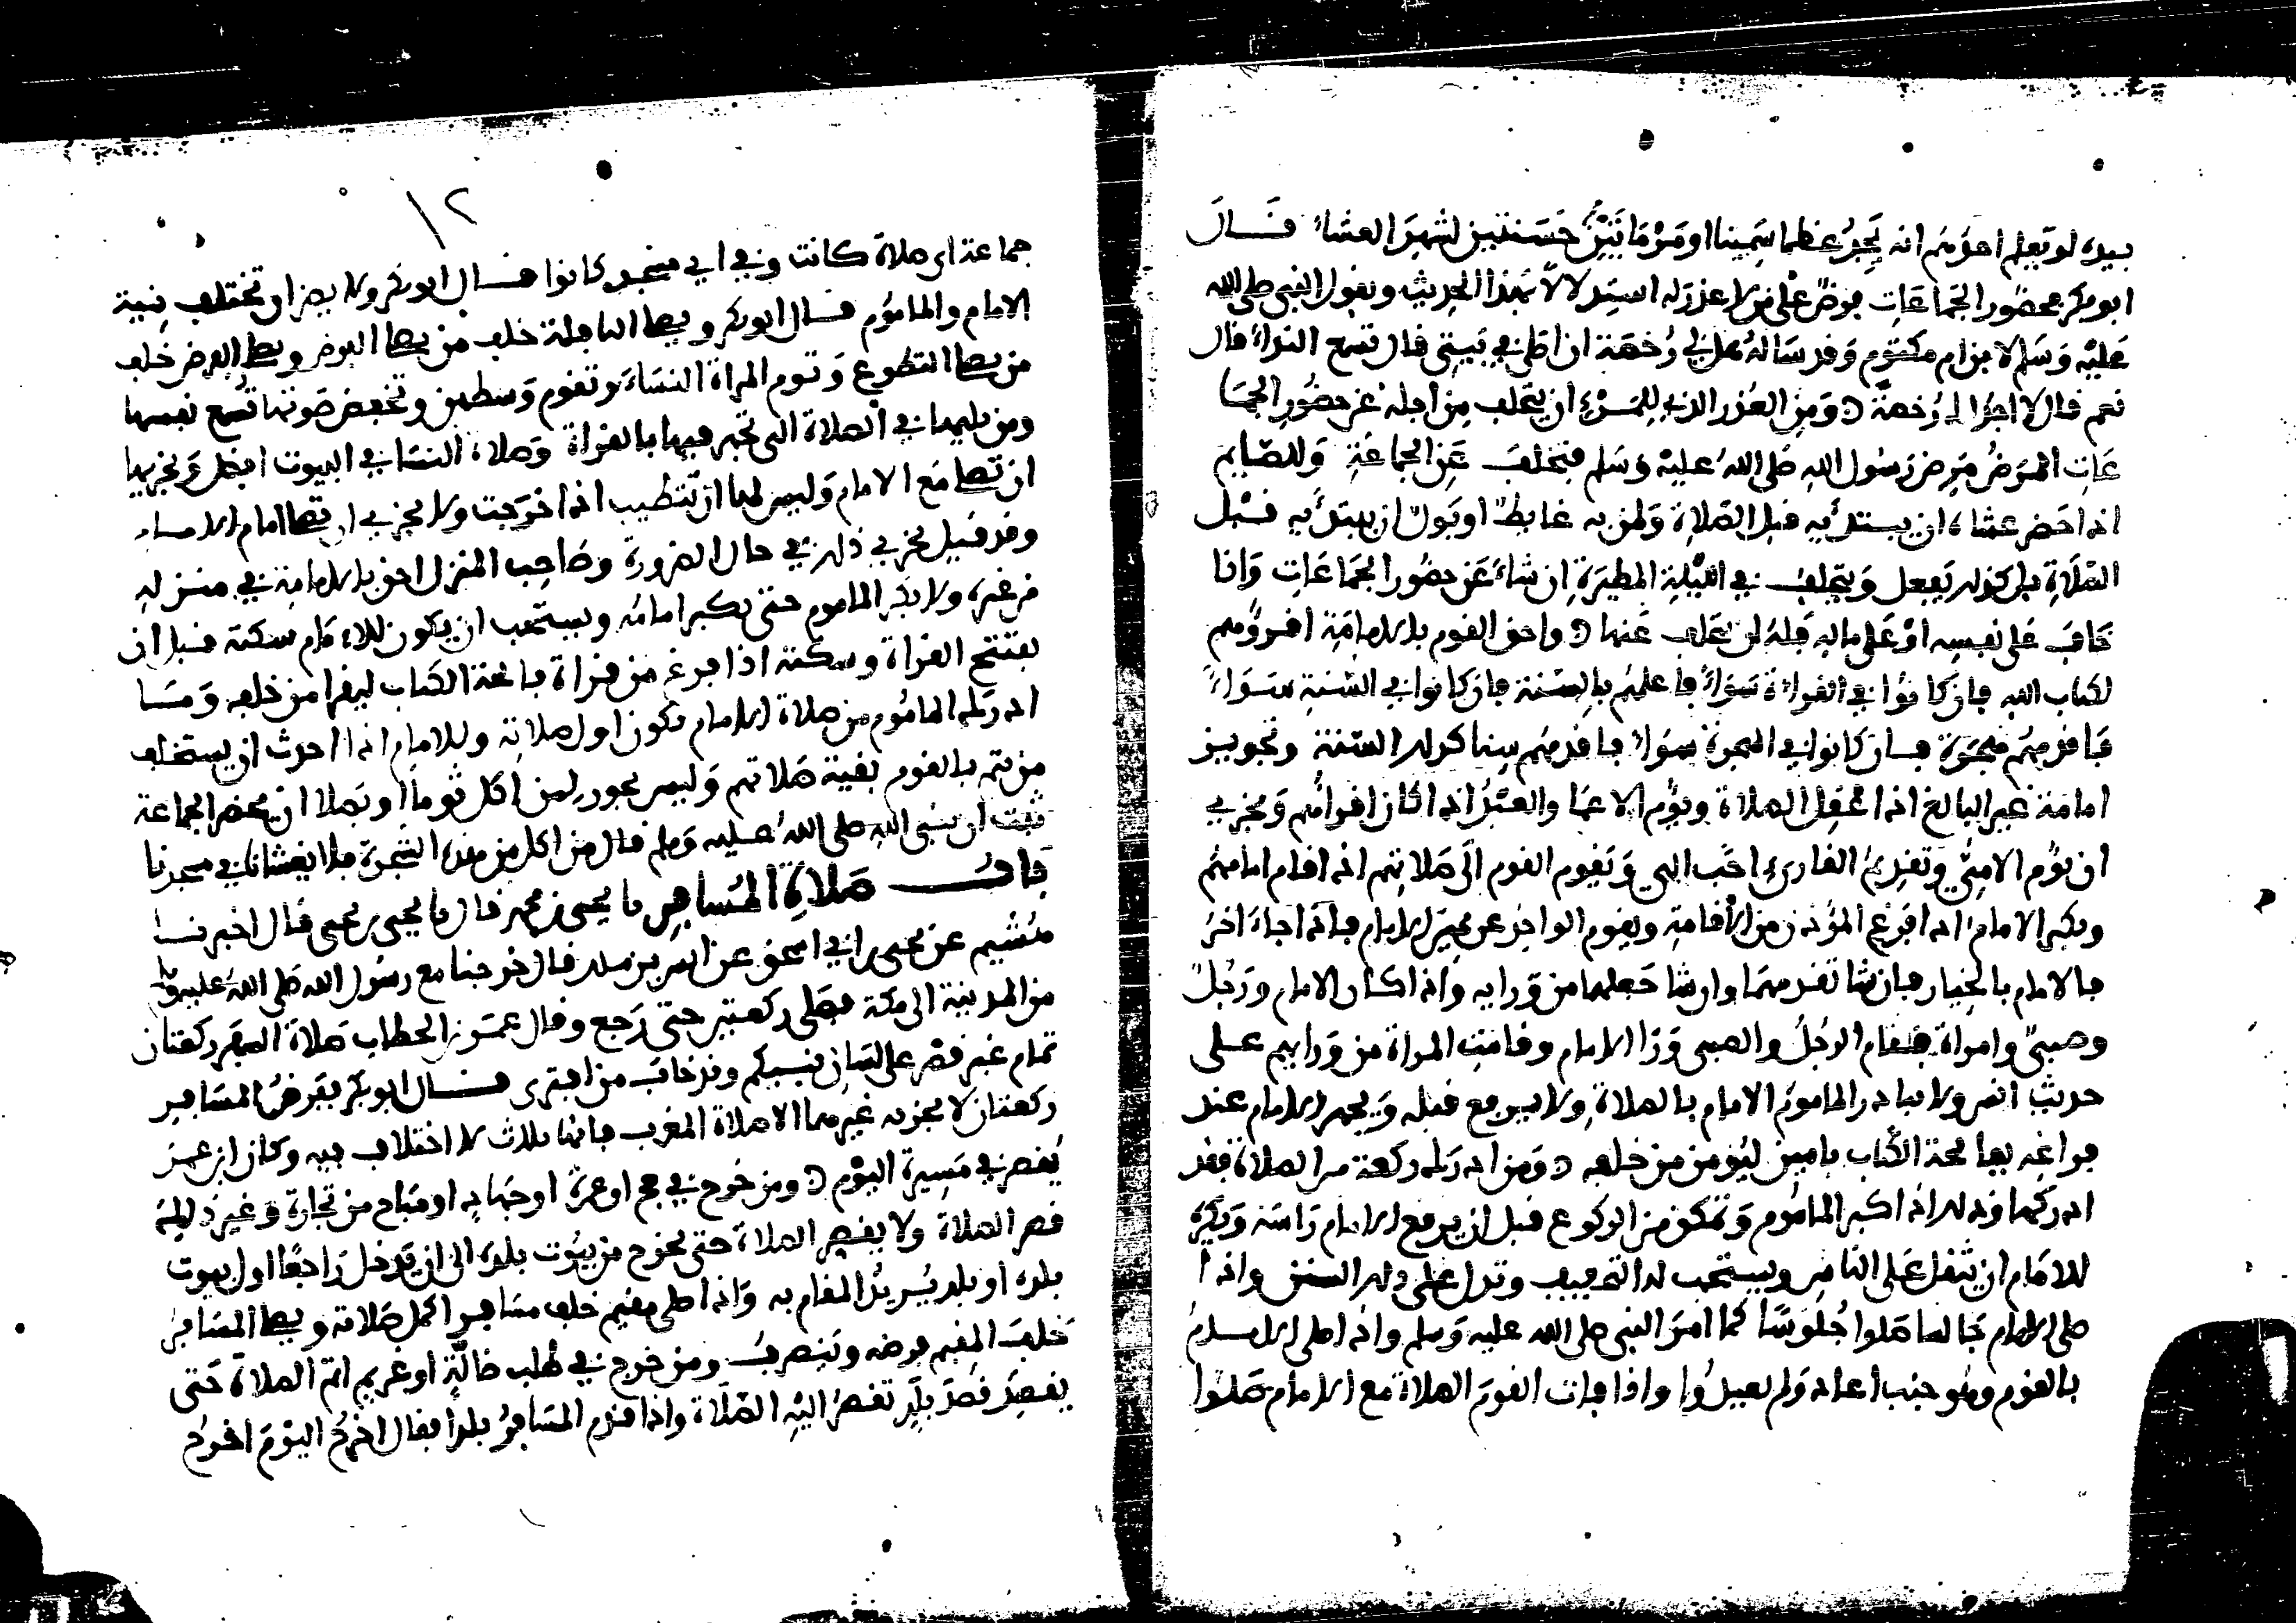 بيده لو يعلم احدهم انه يجد عظما سمينا او مرماتين حسنتين لشهد العشاء قال
ابو بكر فحضور الجماعات فرض على من لا عذر له استدلالا بهذا الحديث وبقول النبي صلى الله
عليه وسلم لابن ام مكتوم وقد ساله هل لي رخصة ان اصلي في بيتي قال تسمع النداء قال
نعم قال لا اجد لك رخصة ومن العذر الذي للمرء ان يتخلف من اجله عن حضور الجما
عات المرض مرض رسول الله صلى الله عليه وسلم فتخلف عن الجماعة وللصايم
اذا حضر عشاه ان يبتدئ به قبل الصلاة ولمن به غايط او بول ان يبتدئ به قبل
الصلاة بل كذلك يفعل ويتخلف في الليلة المطيرة ان شاء عن حضور الجماعات واذا
خاف على نفسه او على ماله فله ان يتخلف عنها واحق القوم بالامامة اقرؤهم
لكتاب الله فان كانوا في القراءة سواء فاعلمهم بالسنة فان كانوا في السنة سواء
فاقدمهم هجرة فان كانوا في الهجرة سواء فاقدمهم سنا كذلك السنة وتجويز
امامة غير البالغ اذا عقل الصلاة ويؤم الاعما والعبد اذا كان اقراهم ويجزي
ان يؤم الامي وتقديم القارئ احب الي ويقوم القوم الى صلاتهم اذا قام امامهم
ويكبر الامام اذا فرغ المؤذن من الاقامة ويقوم الواحد عن يمين الامام فاذا جاء اخر
فالامام بالخيار فان شا تقدمهما وان شا جعلهما من ورايه واذا كان الامام ورجل
وصبي وامراة فقام الرجل والصبي ورا الامام وقامت المراة من ورايهم على
حديث انس ولا يبادر الماموم الامام بالصلاة ولا يرفع قبله ويجهر الامام عند
فراغه بفاتحة الكتاب بامين ليؤمن من خلفه ومن ادرك ركعة من الصلاة فقد
ادركها وذلك اذا كبر الماموم وتمكن من الركوع قبل ان يرفع الامام راسه ويكره
للامام ان يثقل على الناس ويستحب له التخفيف وتدل على ذلك السنن واذا
صلى الامام جالسا صلوا جلوسا كما امر النبي صلى الله عليه وسلم واذا صلى الامام
بالقوم وهو جنب اعاد ولم يعيدوا واذا فات القوم الصلاة مع الامام صلوا
١٢
جماعة اي صلاة كانت وفي اي مسجد كانوا قال ابو بكر ولا يضر ان تختلف نية
الامام والماموم قال ابو بكر ويصلي النافلة خلف من يصلي الفرض ويصلي الفرض خلف
من يصلي التطوع وتوم المراة النساء وتقوم وسطهن وتخفض صوتها تسمع نفسها
ومن يليها في الصلاة التي تجهر فيها بالقراة وصلاة النسا في البيوت افضل ويجزيها
ان تصلي مع الامام وليس لها ان تتطيب اذا خرجت ولا يجزي ان يصلي امام الامام
وقد قيل يجزي ذلك في حال الضرورة وصاحب المنزل احق بالامامة في منزله
من غيره ولا يكبر الماموم حتى يكبر امامه ويستحب ان يكون للامام سكتة قبل ان
يفتتح القراة وسكتة اذا فرغ من قراة فاتحة الكتاب ليقرا من خلفه وما
ادرك الماموم من صلاة الامام يكون اول صلاته وللامام اذا احدث ان يستخلف
من يتم بالقوم بقية صلاتهم وليس يجوز لمن اكل ثوما او بصلا ان يحضر الجماعة
ثبت ان نبي الله صلى الله عليه وسلم قال من اكل من هذه الشجرة فلا يغشانا في مسجدنا
باب صلاة المسافر نا يحيى بن محمد قال نا يحيى بن يحيى قال اخبرنا
هشيم عن يحيى بن ابي اسحق عن انس بن ملك قال خرجنا مع رسول الله صلى الله عليه
من المدينة الى مكة فصلى ركعتين حتى رجع وقال عمر بن الخطاب صلاة السفر ركعتان
تمام غير قصر على لسان نبيكم وقد خاب من افترى قال ابو بكر ففرض المسافر
ركعتان لا يجزيه غيرهما الا صلاة المغرب فانها ثلاث لا اختلاف فيه وكان ابن عمر
يقصر في مسيرة اليوم ومن خرج في حج او عمرة او جهاد او مباح من تجارة وغير ذلك
قصر الصلاة ولا يقصر الصلاة حتى يخرج من بيوت بلده الى ان يدخل راجعا اول بيوت
بلده او بلد يريد المقام به واذا صلى مقيم خلف مسافر اكمل صلاته ويصلي المسافر
خلف المقيم فرضه وينصرف ومن خرج في طلب ضالة او غريم اتم الصلاة حتى
يقصد قصد بلد تقصر اليه الصلاة واذا قدم المسافر بلدا فقال اخرج اليوم اخرج